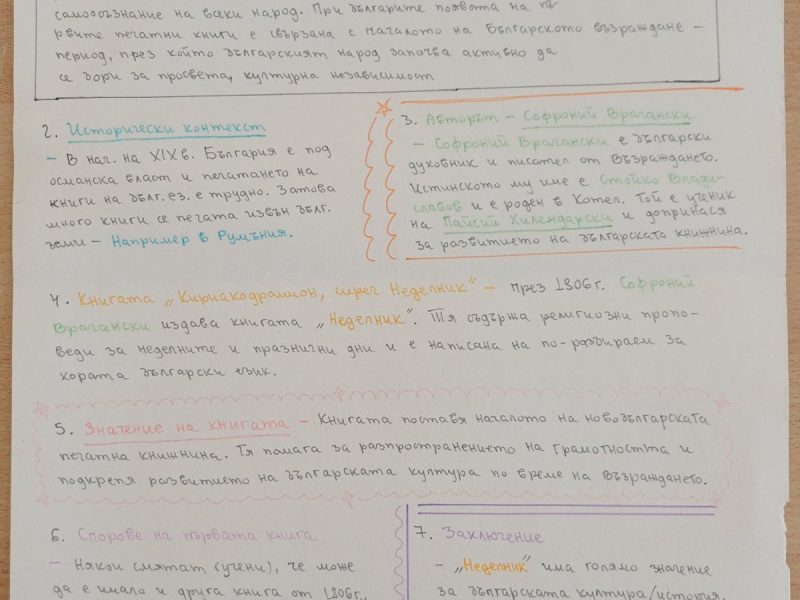 самоосъзнание на всеки народ. При българите появата на пъ-
рвите печатни книги е свързана с началото на Българското възраждане –
период, през който българският народ започва активно да
се бори за просвета, културна независимост
2. Исторически контекст
– В нач. на XIX в. България е под
османска власт и печатането на
книги на бълг. ез. е трудно. Затова
много книги се печата извън бълг.
земи – Например в Румъния.
3. Авторът – Софроний Врачански
– Софроний Врачански е български
духовник и писател от Възраждането.
Истинското му име е Стойко Влади-
славов и е роден в Котел. Той е ученик
на Паисий Хилендарски и допринася
за развитието на българската книжнина.
4. Книгата „Кириакодромион, сиреч Неделник" – през 1806г. Софроний
Врачански издава книгата „Неделник". Тя съдържа религиозни пропо-
веди за неделните и празнични дни и е написана на по-разбираем за
хората български език.
5. Значение на книгата – Книгата поставя началото на новобългарската
печатна книжнина. Тя помага за разпространението на грамотността и
подкрепя развитието на българската култура по време на Възраждането.
6. Спорове на първата книга
– Някои смятат (учени), че може
да е имало и друга книга от 1806г.,
7. Заключение
– „Неделник" има голямо значение
за българската култура/история.